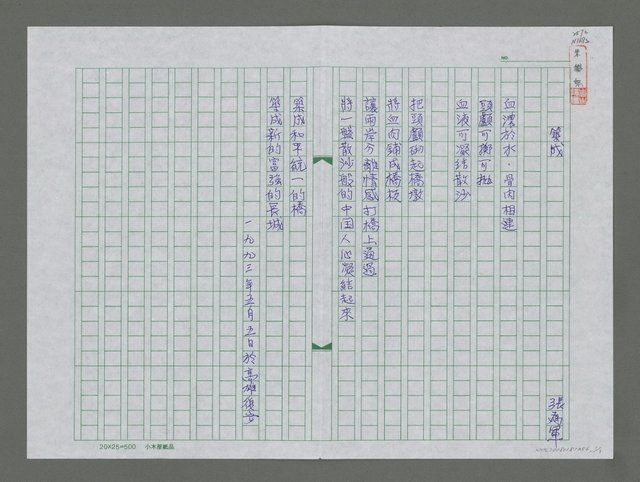 築成
張為軍
血濃於水．骨肉相連
頭顱可拋
血液可凝結散沙
把頭顱砌起橋墩
將血肉鋪成橋板
讓兩岸分離情感打橋上通過
將一盤散沙般的中国人心凝結起來
築成和平統一的橋
築成新的富強的長城
一九九三年五月五日於高雄
NO.
20×25=500 小木屋紙品